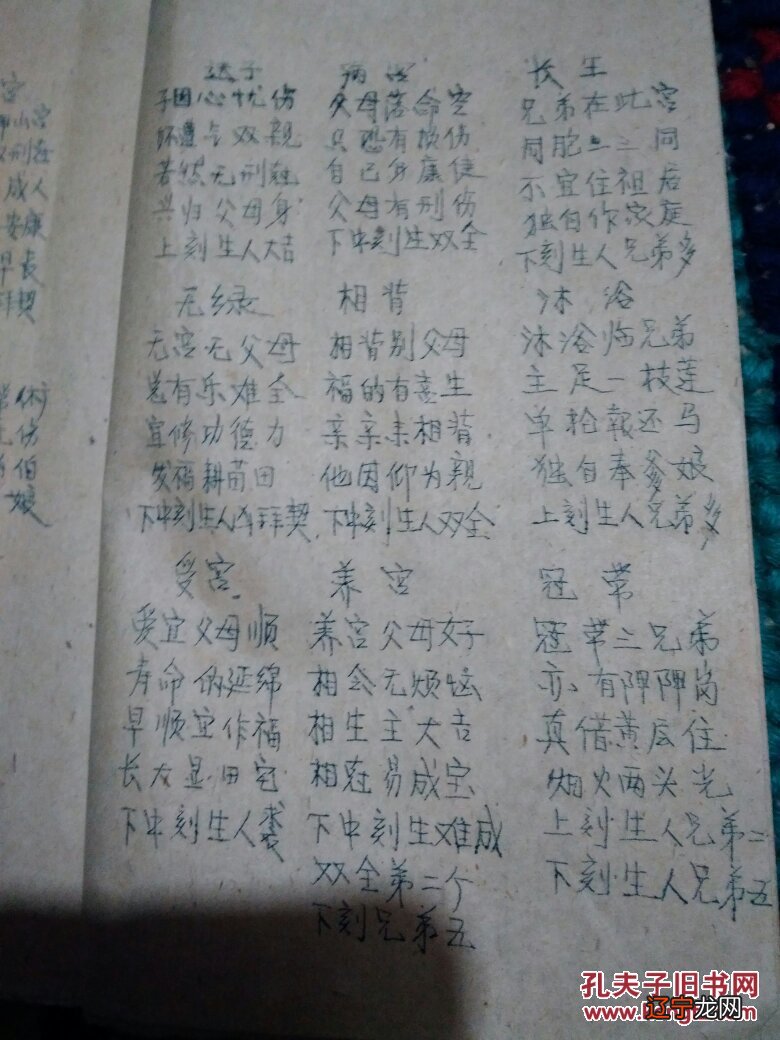 宫
刑
成人
安康
早长
拜契
休
伤
伯
娘
忧伤
双亲
若然无刑
共归父母身
上刻生人大吉
无绿
无宫无父母
总有乐难全
宜修功德力
发福耕苗田
下中刻生人凶拜契
受宫
爱宜父母顺
寿命的延绵
早顺宜作福
长大显田宅
下中刻生人
病宫
父母落命空
只恐有损伤
自己身康健
父母有刑伤
下中刻生双全
相背
相背别父母
福的有喜生
亲亲未相背
他因仰为亲
下中刻生人双全
养宫
养宫父母好
相会无烦恼
相生主大吉
相克易成宝
下中刻生难成
双全第二个
下刻兄弟五
长生
兄弟在此宫
同胞二三同
不宜住祖居
独自作家庭
下刻生人兄弟多
沐浴
沐浴临兄弟
主足一枝莲
单枪报还马
独自奉爹娘
上刻生人兄弟多
冠带
冠带三兄弟
亦有岗
真借黄后住
烟火两头光
上刻生人兄弟二
下刻生人兄弟五
孔夫子旧书网
辽宁龙网